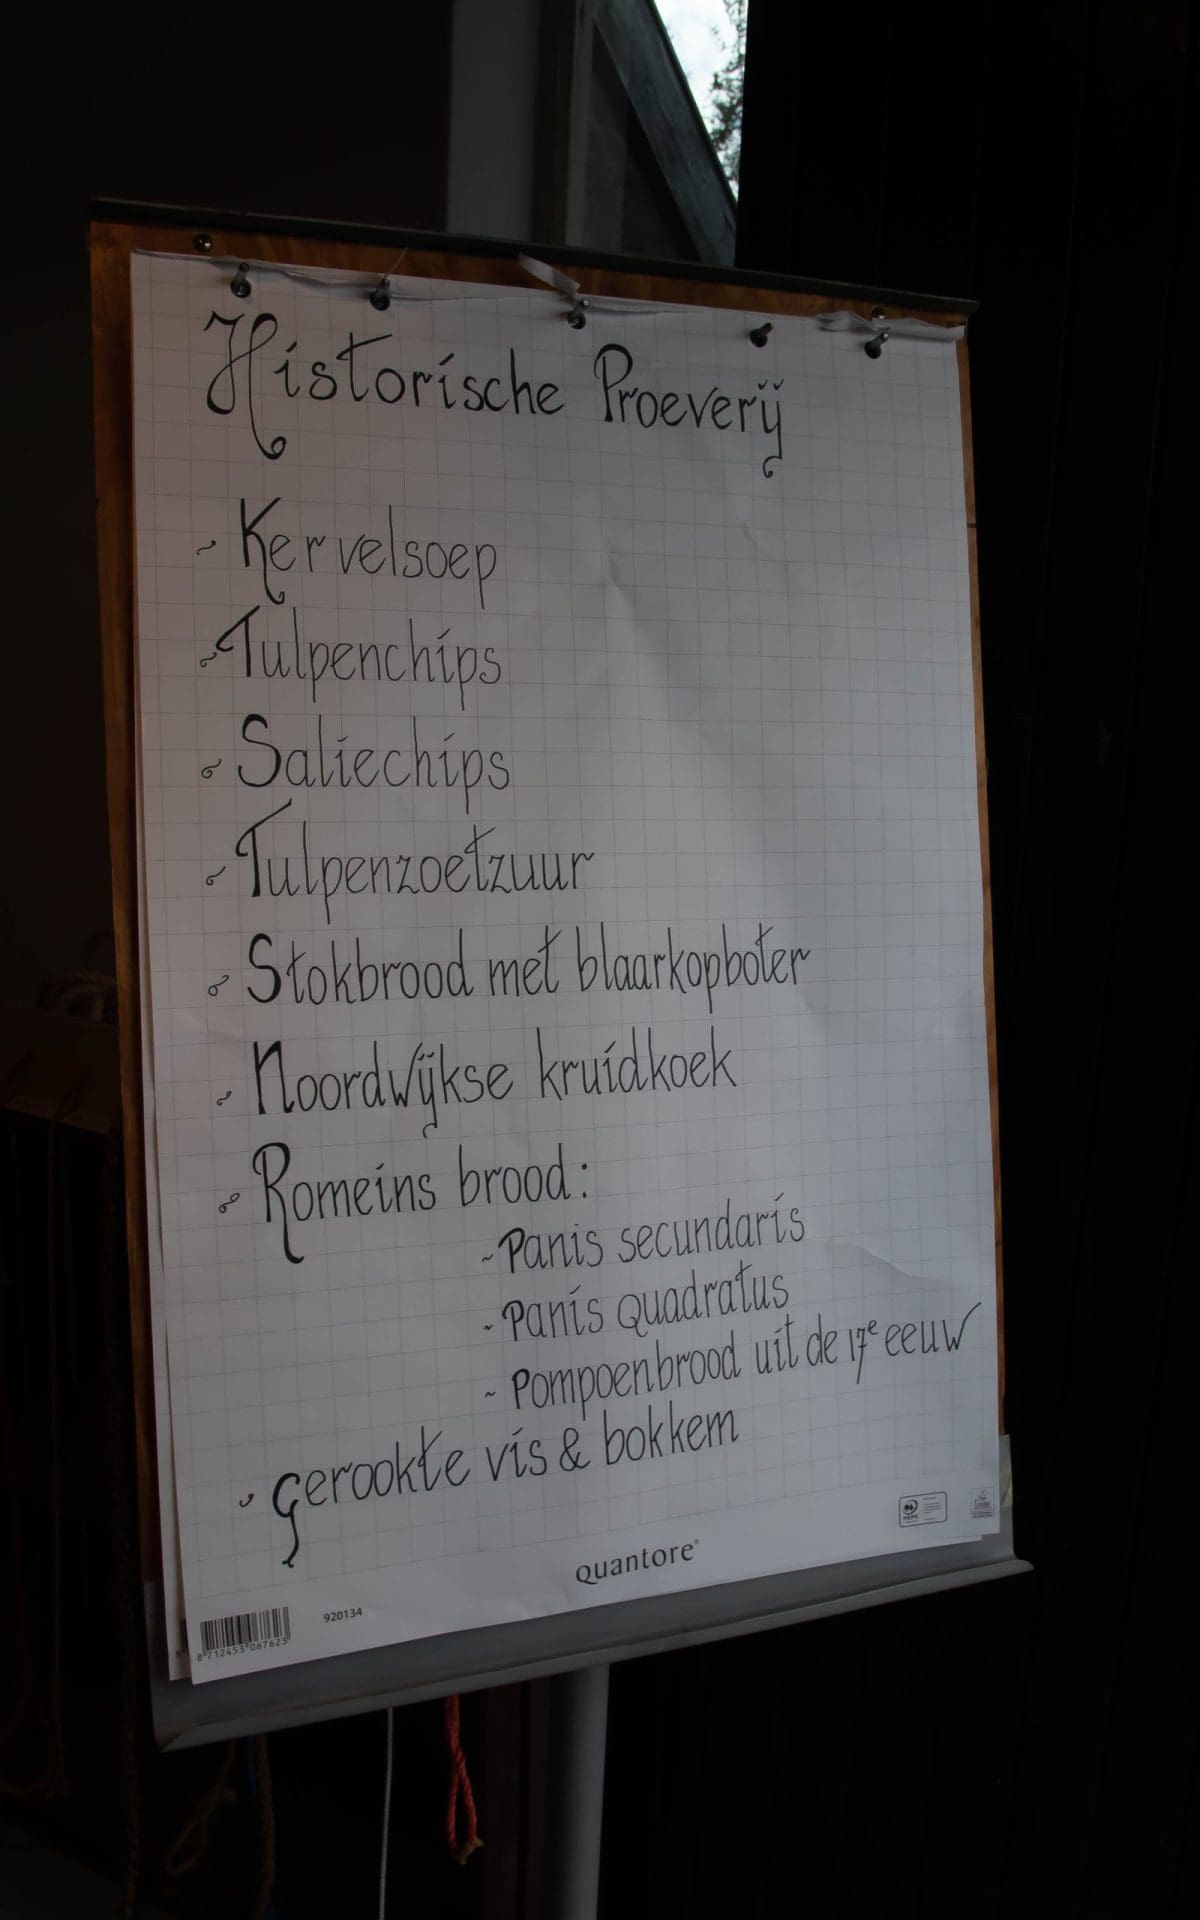 Historische Proeverij
~ Kervelsoep
~ Tulpenchips
~ Saliechips
~ Tulpenzoetzuur
~ Stokbrood met blaarkopboter
~ Noordwijkse kruidkoek
~ Romeins brood:
~ Panis secundaris
~ Panis quadratus
~ Pompoenbrood uit de 17e eeuw
~ gerookte vis & bokkem
quantore®
920134
8 712453 067623